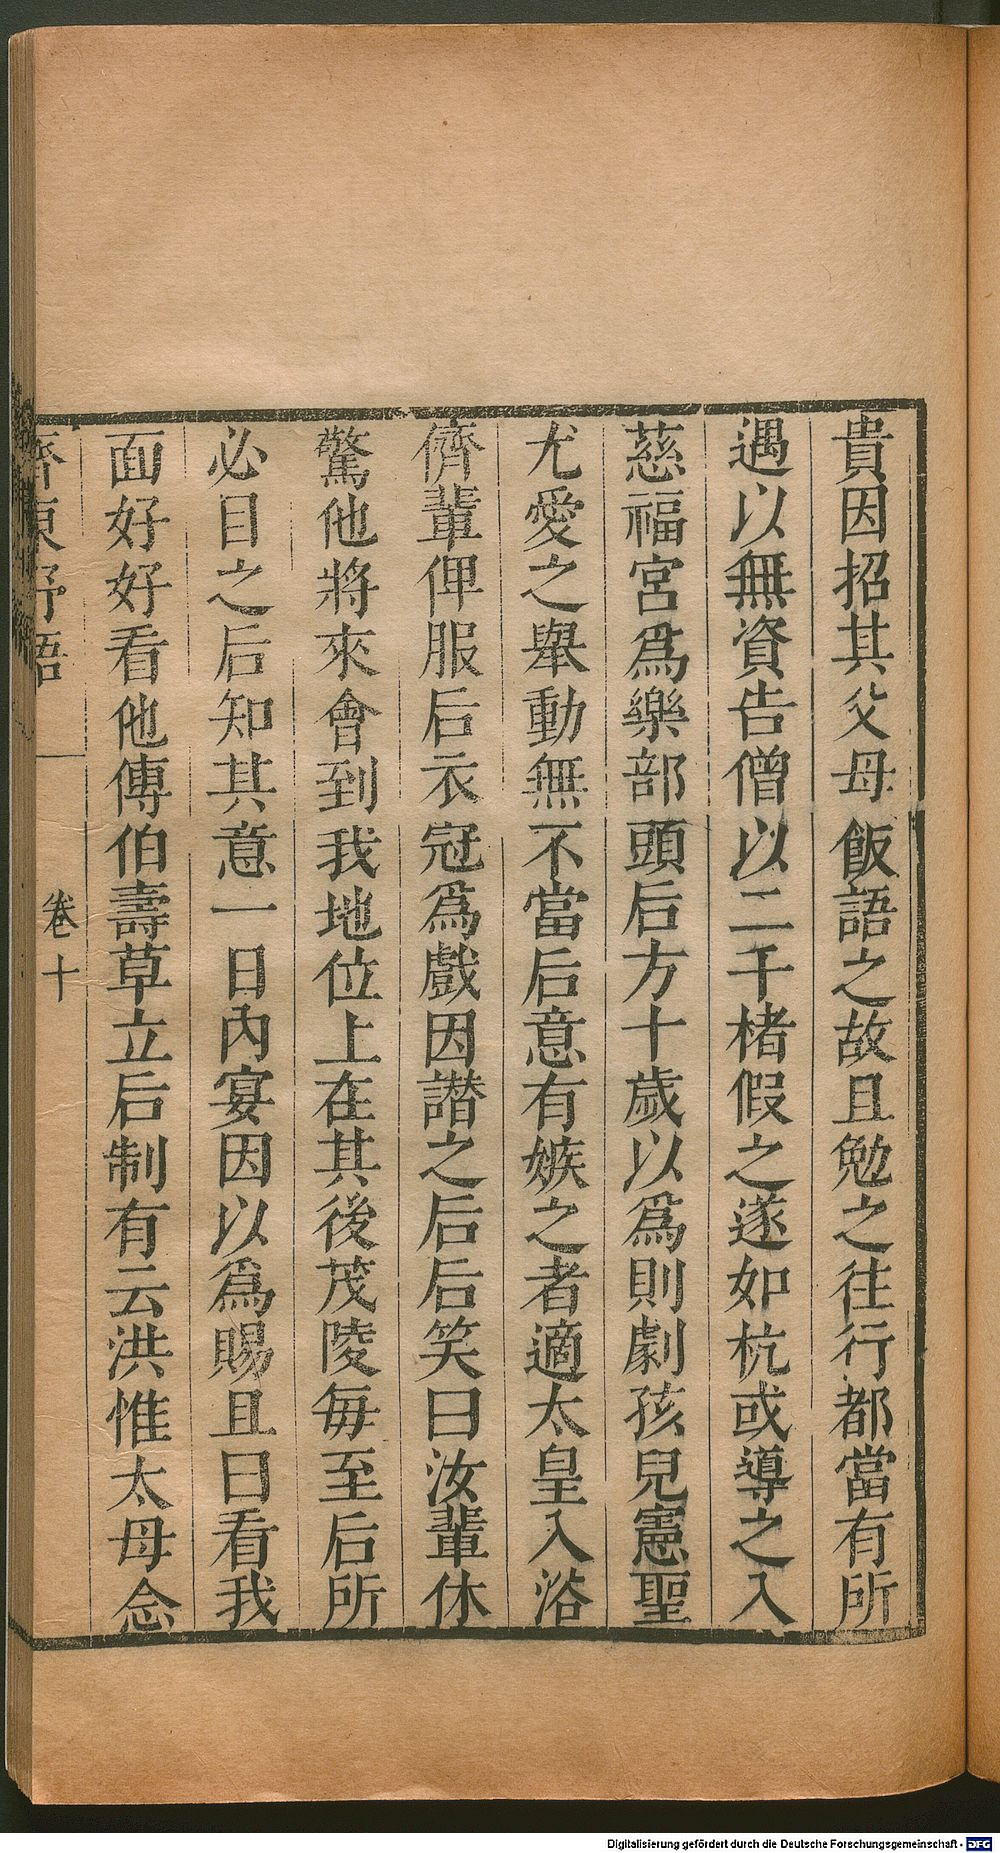 貴因招其父母飯語之故且勉之往行都當有所
遇以無資告僧以二千楮假之遂如杭或導之入
慈福宮爲樂部頭后方十歲以爲則劇孩兒憲聖
尤愛之舉動無不當后意有嫉之者適太皇入浴
儕輩俾服后衣冠爲戲因譖之后后笑曰汝輩休
驚他將來會到我地位上在其後茂陵每至后所
必目之后知其意一日內宴因以爲賜且曰看我
面好好看他傅伯壽草立后制有云洪惟太母念
齊東野語
卷十
Digitalisierung gefördert durch die Deutsche Forschungsgemeinschaft - DFG